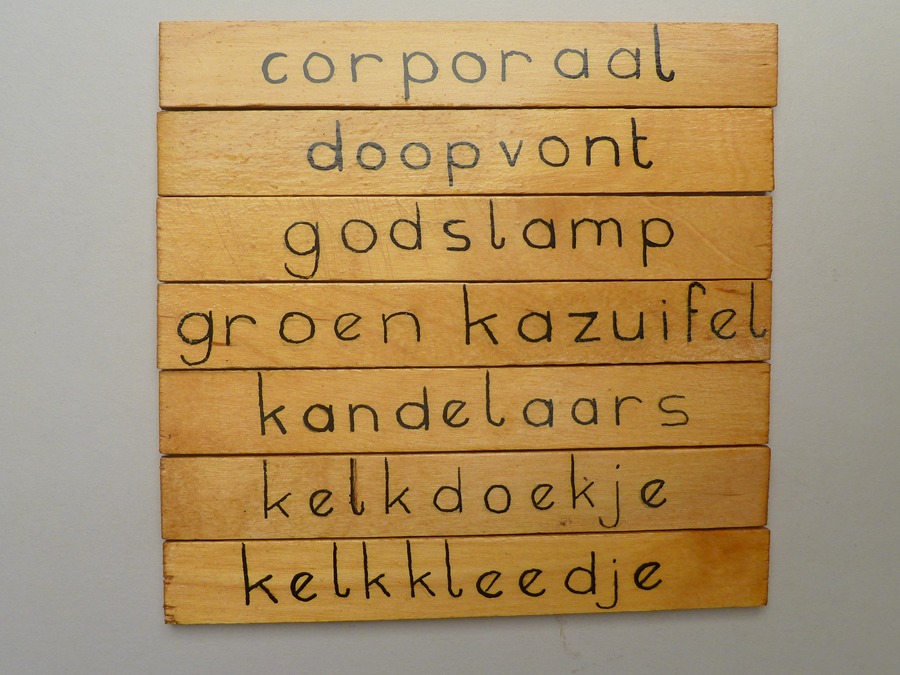 corporaal
doopvont
godslamp
groen kazuifel
kandelaars
kelkdoekje
kelkkleedje